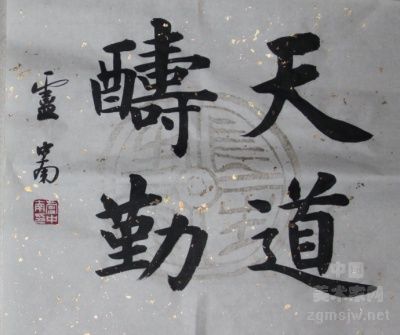 天道
醻勤
盧中南
中国
美术家网
zgmsjw.net